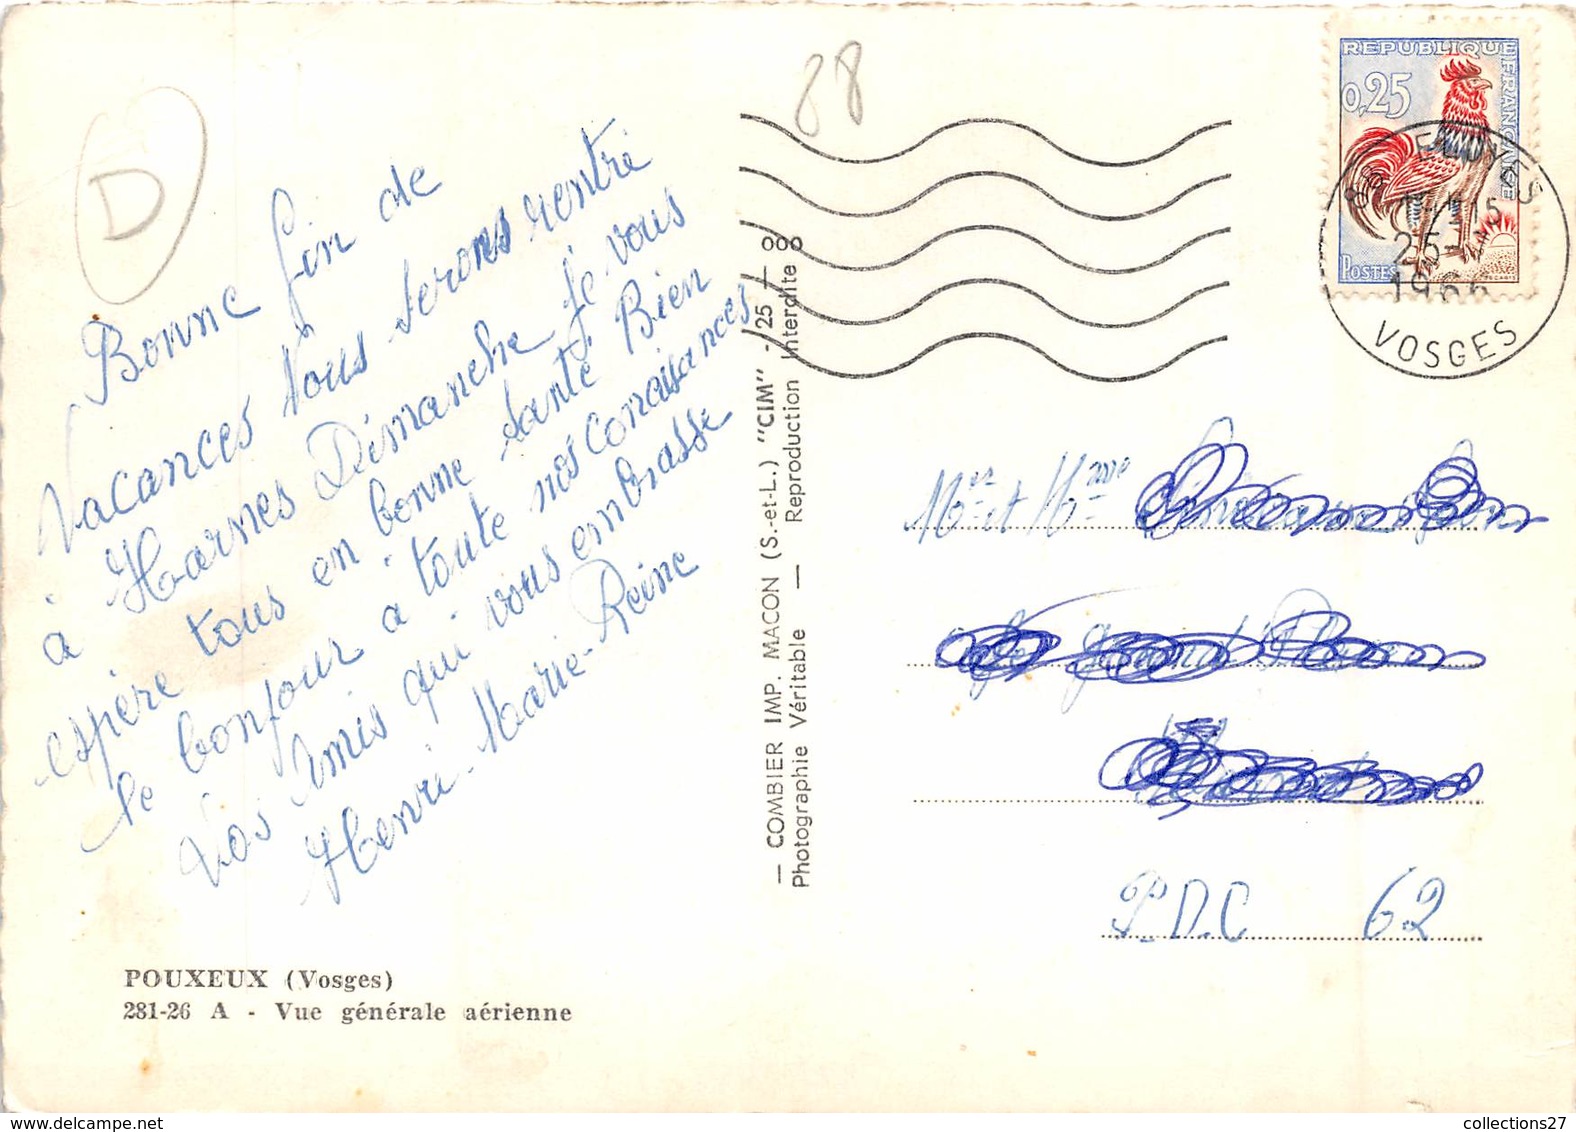 D
88
Bonne fin de
Vacances Nous serons rentré
à Harnes Dimanche Je vous
espère tous en bonne santé Bien
le bonjour a toute nos conaisances
Vos Amis qui vous embrasse
Henri - Marie-Reine
POUXEUX (Vosges)
281-26 A - Vue générale aérienne
— COMBIER IMP. MACON (S.-et-L.) "CIM" - 25 — ooo
Photographie Véritable — Reproduction Interdite
REPUBLIQUE FRANÇAISE
0,25
POSTES
DECARIS
88 ELOYES
15
25-
1966
VOSGES
Mer et Mme
P.D.C 62
collections27